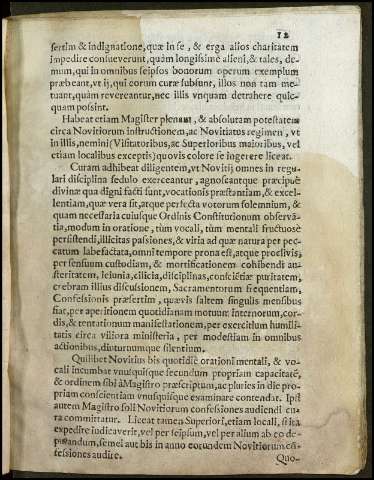 12
sertim & indignatione, quæ in se, & erga alios charitatem
impedire consueuerunt, quàm longissimè alieni, & tales, de-
mum, qui in omnibus seipsos bonorum operum exemplum
præbeant, vt ij, qui eorum curæ subsunt, illos non tam me-
tuant, quàm reuereantur, nec illis vnquam detrahere quic-
quam possint.
Habeat etiam Magister plenam, & absolutam potestatem
circa Nouitiorum instructionem, ac Nouitiatus regimen, vt
in illis, nemini (Visitatoribus, ac Superioribus maioribus, vel
etiam localibus exceptis) quouis colore se ingerere liceat.
Curam adhibeat diligentem, vt Nouitij omnes in regu-
lari disciplina sedulo exerceantur, agnoscantque præcipuè
diuinæ qua digni facti sunt, vocationis præstantiam, & excel-
lentiam, quæ vera sit, atque perfecta votorum solemnium, &
quam necessaria cuiusque Ordinis Constitutionum obserua-
tia, modum in oratione, tùm vocali, tùm mentali fructuosè
persistendi, illicitas passiones, & vitia ad quæ natura per pec-
catum labefactata, omni tempore prona est, atque procliuis,
per sensuum custodiam, & mortificationem cohibendi au-
steritatem, ieiunia, cilicia, disciplinas, consciẽtiæ puritatem,
crebram illius discussionem, Sacramentorum frequentiam,
Confessionis præsertim, quæuis saltem singulis mensibus
fiat, per aperitionem quotidianam motuum internorum, cor-
dis, & tentationum manifestationem, per exercitium humili-
tatis circa viliora ministeria, per modestiam in omnibus
actionibus, diuturnumque silentium.
Quilibet Nouitius bis quotidiè orationi mentali, & vo-
cali incumbat vnusquisque secundum propriam capacitatẽ,
& ordinem sibi à Magistro præscriptum, ac pluries in die pro-
priam conscientiam vnusquisque examinare contendat. Ipsi
autem Magistro soli Nouitiorum confessiones audiendi cu-
ra committatur. Liceat tamen Superiori, etiam locali, si ita
expedire iudicauerit, vel per seipsum, vel per alium ab eo de-
putandum, semel aut bis in anno eorundem Nouitiorum cõ-
fessiones audire.
Quo-